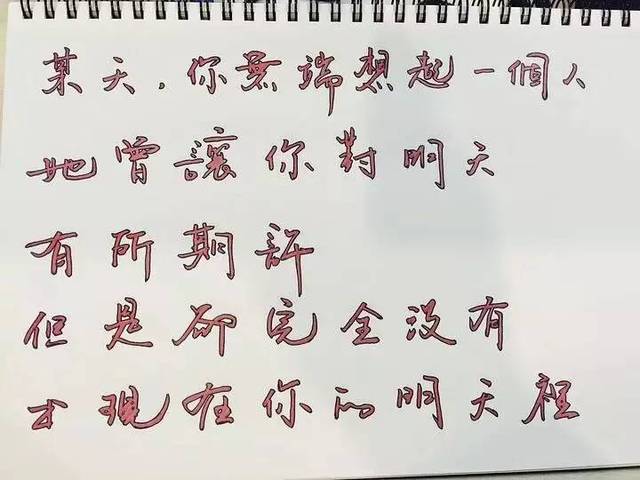 某天，你無端想起一個人
她曾讓你對明天
有所期許
但是卻完全沒有
出現在你的明天裡